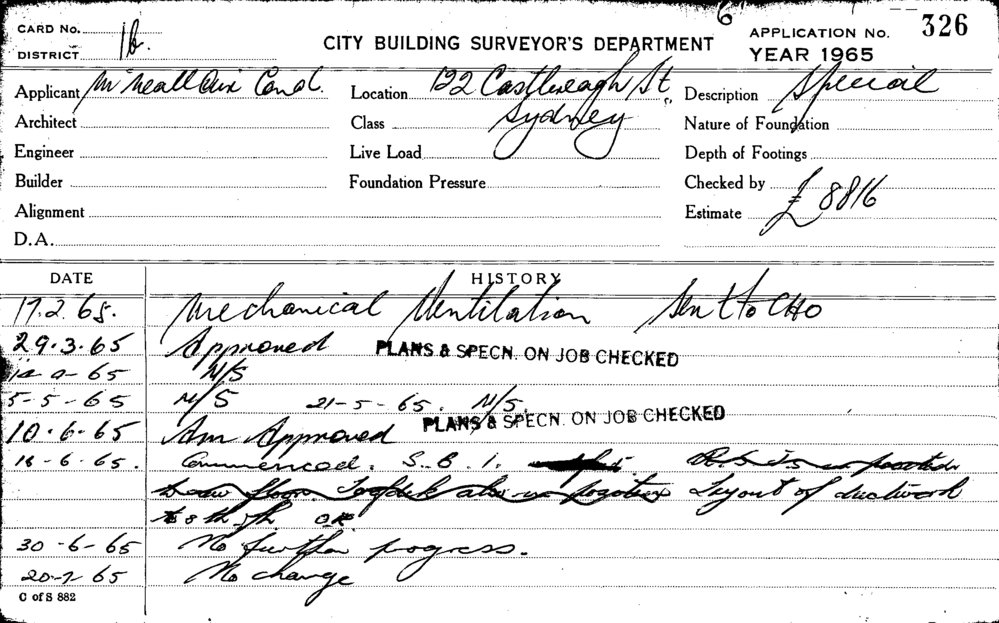 6
CARD No. APPLICATION No. 326
DISTRICT 1b. CITY BUILDING SURVEYOR'S DEPARTMENT YEAR 1965
Applicant Location 122 Castlereagh St. Description Special
Architect Class Sydney Nature of Foundation
Engineer Live Load Depth of Footings
Builder Foundation Pressure Checked by
Alignment Estimate £ 8816
D.A.
DATE HISTORY
17.2.65. Mechanical Ventilation Sent to CHO
29.3.65 Approved PLANS & SPECN. ON JOB CHECKED
65 N/S
5-5-65 N/S 21-5-65. N/S.
10.6.65 Am Approved PLANS & SPECN. ON JOB CHECKED
-6-65. Commenced. S.B.1.
Layout of ductwork
to 8th fl. OK
30-6-65 No further progress.
20-7-65 No change
C of S 882